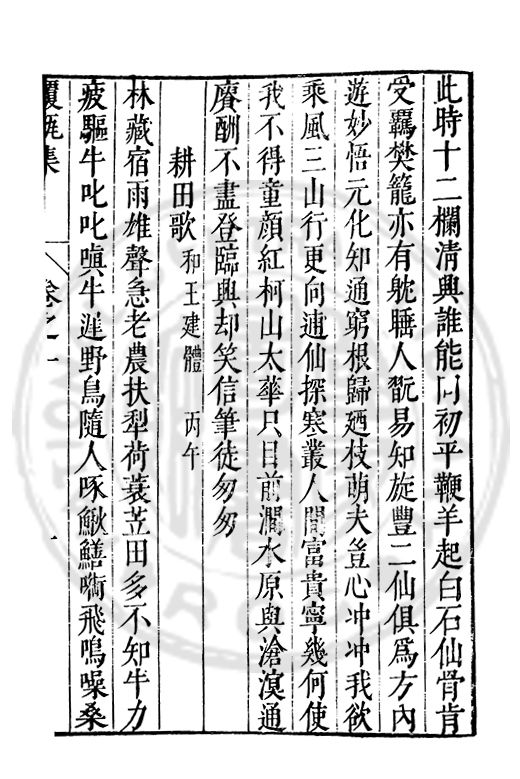 此時十二欄清興誰能同初平鞭羊起白石仙骨肯
受羈樊籠亦有躭睡人翫易知旋豐二仙俱爲方內
遊妙悟元化知通窮根歸廼枝萌夫豈心冲冲我欲
乘風三山行更向逋仙探寒叢人間富貴寧幾何使
我不得童顏紅柯山太華只目前澗水原與滄溟通
賡酬不盡登臨興却笑信筆徒匆匆
耕田歌 和王建體 丙午
林藏宿雨雄聲急老農扶犁荷蓑苙田多不知牛力
疲驅牛叱叱嗔牛遲野鳥隨人啄鰍鱔啣飛鳴噪桑
覆瓿集 卷之一